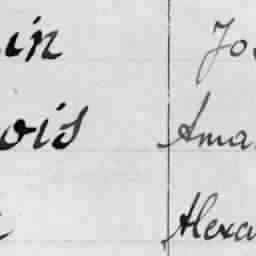 in Jo
ois Ama
Alexa